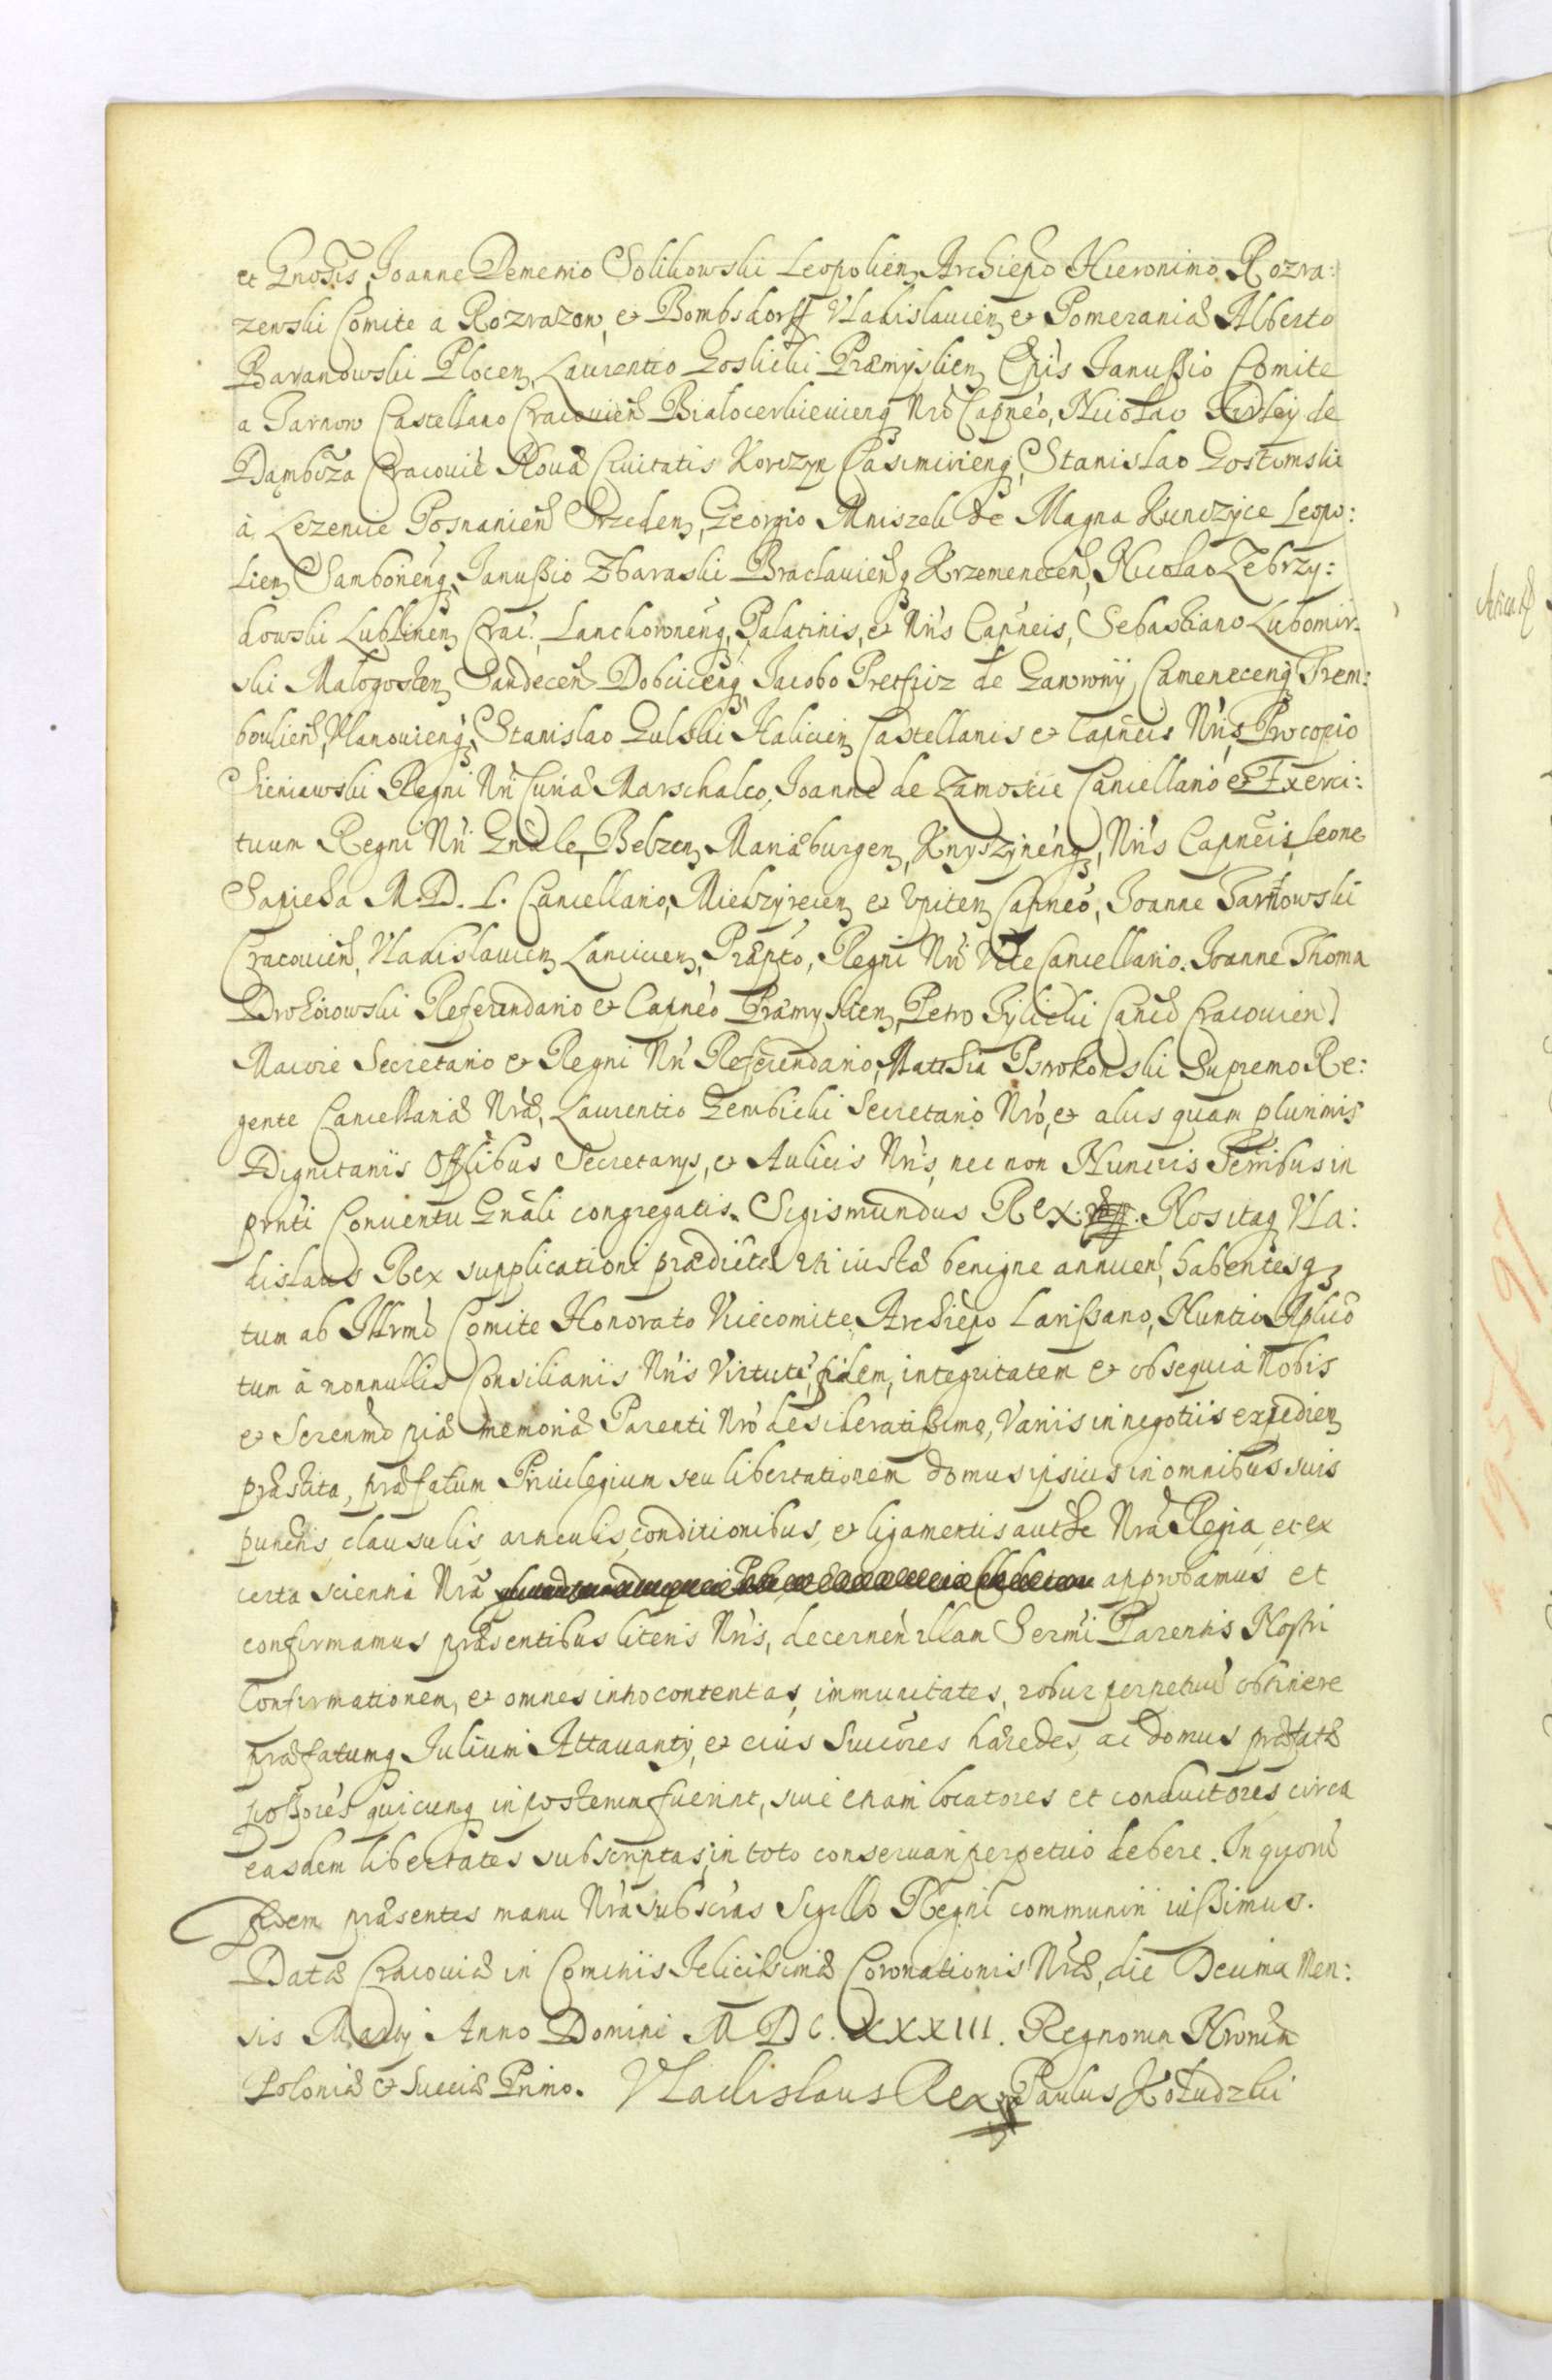 et Gnosis, Joanne Demetrio Solikowski Leopolien Archiepo Hieronimo Rozra:
zewski Comite a Rozrazow, et Pombsdorff Vladislauien et Pomeraniæ Alberto
Baranowski Plocen, Laurentio Goslicki Præmyslien Epis Janussio Comite
a Tarnow Castellano Cracouien Bialocerkieuienq Nro Capneo, Nicolao Firley de
Dąmbroza Cracouiæ Nouæ Ciuitatis Korczyn Casimirienq, Stanislao Gostomski
à Lezenice Posnanien Srzeden, Georgio Mniszek de Magna Kunczyce Leopo:
lien Samborienq, Janussio Zbaraski Braclauienq Krzemenecen, Nicolao Zebrzy:
dowski Lublinen, Crac. Lanckoronenq, Palatinis, et Nris Capneis, Sebastiano Lubomir-
ski Malogosten, Sandecen Dobcicenq Jacobo Pretficz de Gawrony, Camenecenq Trem:
boulien, Vlanouienq, Stanislao Gulski Halicien Castellanis et Capneis Nris, Procopio
Sieniawski Regni Nri Curiæ Marschalco, Joanne de Zamoscie Cancellario et Exerci:
tuum Regni Nri Gnale, Belzen, Mariæburgen, Knyszynenq, Nris Capneis, Leone
Sapieha M. D. L. Cancellario, Miedzyrecien et Vpiten Capneo, Joanne Tarnowski
Cracouien, Vladislauien Lancicien, Præpto, Regni Nri Vice Cancellario. Joanne Thoma
Drohoiowski Referendario et Capneo Præmyslien, Petro Tylicki Canco Cracouien
Maiore Secretario et Regni Nri Referendario, Mathia Pstrokonski Supremo Re:
gente Cancellariæ Nræ, Laurentio Gembicki Secretario Nro, et aliis quam plurimis
Dignitariis Offlibus Secretarys, et Aulicis Nris, nec non Nunciis Terribus in
prnti Conuentu Gnali congregatis. Sigismundus Rex. Nos itaq Vla:
dislaus Rex supplicationi prædictæ uti iustæ benigne annuen, habentesq
tum ab Illrmo Comite Honorato Vicecomite Archiepo Larissano, Nuntio Aplico
tum à nonnullis Consiliariis Nris Virtute, fidem, integritatem et obsequia Nobis
et Serenmo piæ memoriæ Parenti Nro desideratissimo, Variis in negotiis expedien
præstita, præfatum Priuilegium seu libertationem domus ipsius in omnibus suis
punctis clausulis, articulis, conditionibus, et ligamentis authte Nra Regia, et ex
certa scientia Nra approbamus et
confirmamus præsentibus literis Nris, decernen illam Sermi Parentis Nostri
Confirmationem, et omnes in ho contentas, immunitates, robur perpetuū obtinere
præfatumq Julium Attauanty, et eius Succōres hæredes, ac domus præfatæ
possores quicunq in posterum fuerint, siue etiam locatores et conductores circa
easdem libertates subscriptas, in toto conseruari perpetuo debere. In quorū
fidem præsentes manu Nra subscras Sigillo Regni communiri iussimus.
Datæ Cracouiæ in Comitiis Felicissimæ Coronationis Nræ, die Decima Men:
sis Marty Anno Domini M D C. XXXIII. Regnorum Nrorum
Poloniæ et Sueciæ Primo. Vladislaus Rex. Paulus Kołudzki